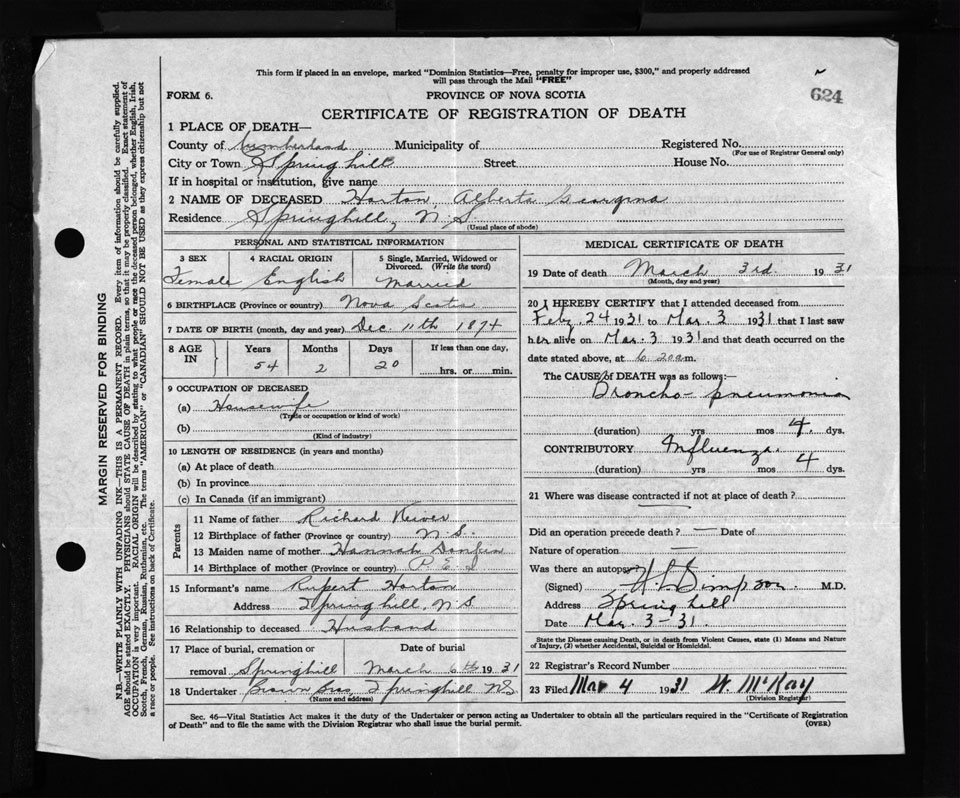 This form if placed in an envelope, marked "Dominion Statistics—Free, penalty for improper use, $300," and properly addressed
will pass through the Mail "FREE"
FORM 6.
PROVINCE OF NOVA SCOTIA
624
CERTIFICATE OF REGISTRATION OF DEATH
1 PLACE OF DEATH—
County of Cumberland Municipality of Registered No.
(For use of Registrar General only)
City or Town Springhill Street House No.
If in hospital or institution, give name
2 NAME OF DECEASED Horton, Alberta Georgina
Residence Springhill, N.S.
(Usual place of abode)
PERSONAL AND STATISTICAL INFORMATION
3 SEX 4 RACIAL ORIGIN 5 Single, Married, Widowed or
Divorced. (Write the word)
Female English Married
6 BIRTHPLACE (Province or country) Nova Scotia
7 DATE OF BIRTH (month, day and year) Dec. 11th 1874
8 AGE IN Years Months Days If less than one day,
54 2 20 hrs. or min.
9 OCCUPATION OF DECEASED
(a) Housewife
(Trade or occupation or kind of work)
(b)
(Kind of industry)
10 LENGTH OF RESIDENCE (in years and months)
(a) At place of death
(b) In Province
(c) In Canada (if an immigrant)
Parents
11 Name of father Richard
12 Birthplace of father (Province or country) N.S.
13 Maiden name of mother Hannah
14 Birthplace of mother (Province or country) P.E.I
15 Informant's name Rupert Horton
Address Springhill, N.S.
16 Relationship to deceased Husband
17 Place of burial, cremation or Date of burial
removal Springhill March 6th 1931
18 Undertaker Brown Bros, Springhill NS
(Name and address)
MEDICAL CERTIFICATE OF DEATH
19 Date of death March 3rd. 1931
(Month, day and year)
20 I HEREBY CERTIFY that I attended deceased from
Feby. 24 1931 to Mar. 3 1931 that I last saw
her alive on Mar. 3 1931 and that death occurred on the
date stated above, at 6 20a m.
The CAUSE of DEATH was as follows:—
Broncho-pneumonia
(duration) yrs mos 4. dys.
CONTRIBUTORY Influenza.
(duration) yrs mos 4 dys.
21 Where was disease contracted if not at place of death?
Did an operation precede death? — Date of
Nature of operation —
Was there an autopsy?
(Signed) Simpson. M.D.
Address Springhill
Date Mar. 3-31.
State the Disease causing Death, or in death from Violent Causes, state (1) Means and Nature
of Injury, (2) whether Accidental, Suicidal or Homicidal.
22 Registrar's Record Number
23 Filed Mar 4 1931 W. McKay
(Division Registrar)
Sec. 46—Vital Statistics Act makes it the duty of the Undertaker or person acting as Undertaker to obtain all the particulars required in the "Certificate of Registration
of Death" and to file the same with the Division Registrar who shall issue the burial permit. (OVER)
MARGIN RESERVED FOR BINDING
N.B.—WRITE PLAINLY WITH UNFADING INK—THIS IS A PERMANENT RECORD. Every item of information should be carefully supplied.
AGE should be stated EXACTLY. PHYSICIANS should STATE CAUSE OF DEATH in plain terms, so that it may be properly classified. Exact statement of
OCCUPATION is very important. RACIAL ORIGIN will be described by stating to what people or race the deceased person belonged, whether English, Irish,
Scotch, French, German, Russian, Ruthenian, etc. The terms "AMERICAN" or "CANADIAN" SHOULD NOT BE USED as they express citizenship but not
a race or people. See instructions on back of Certificate.